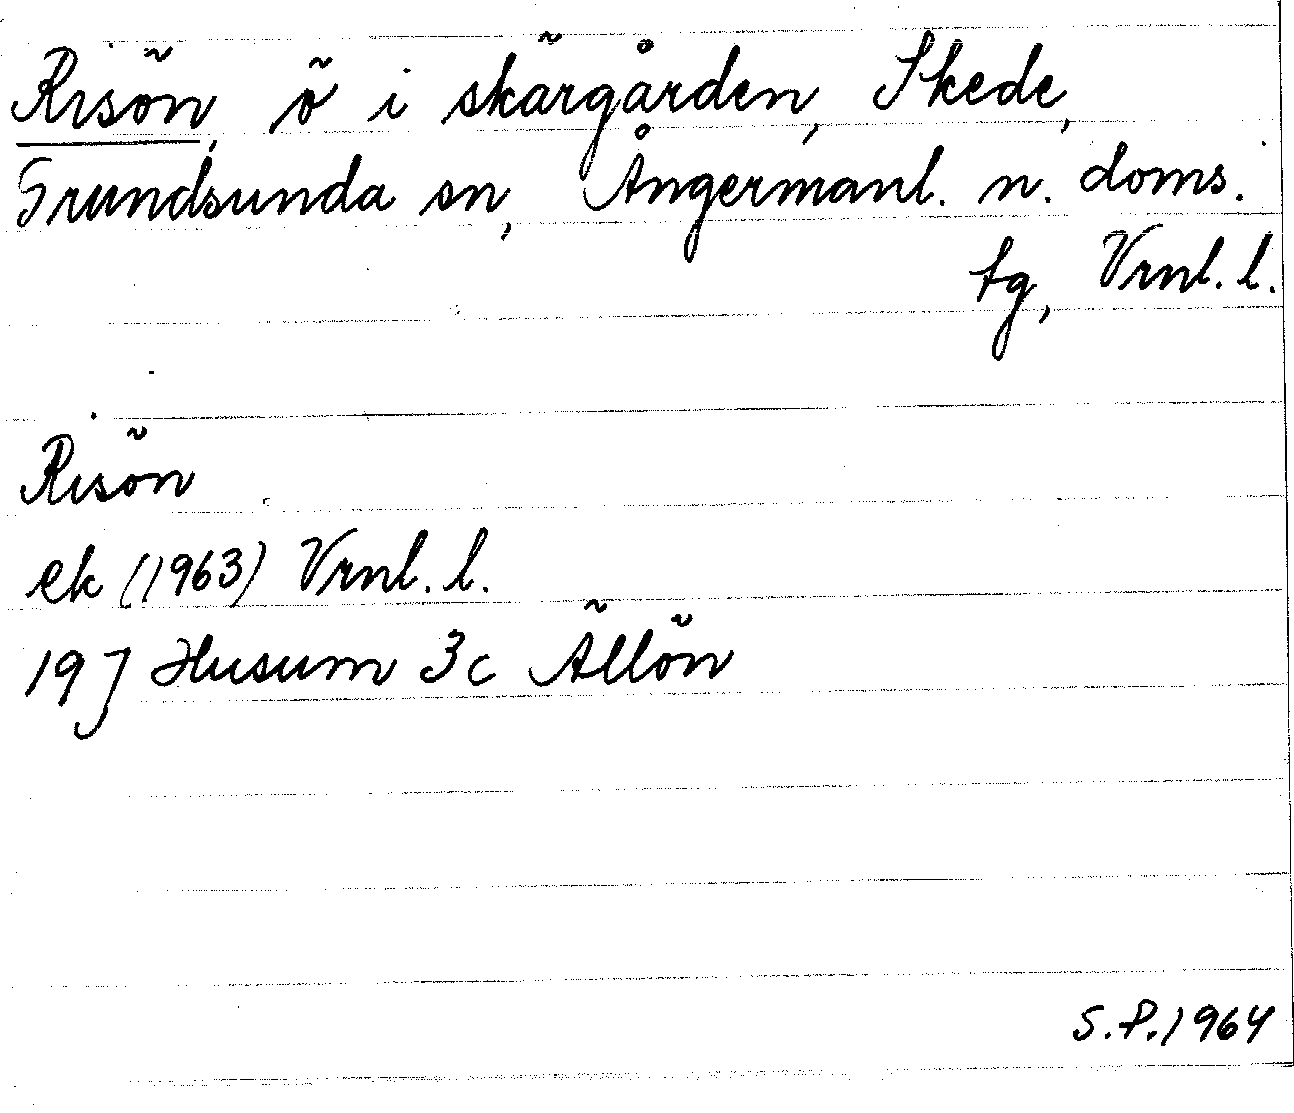 Risön, ö i skärgården, Skede,
Grundsunda sn, Ångermanl. n. doms.
tg, Vrnl. l.
Risön
ek (1963) Vrnl. l.
19J Husum 3c Ällön
S.P. 1964